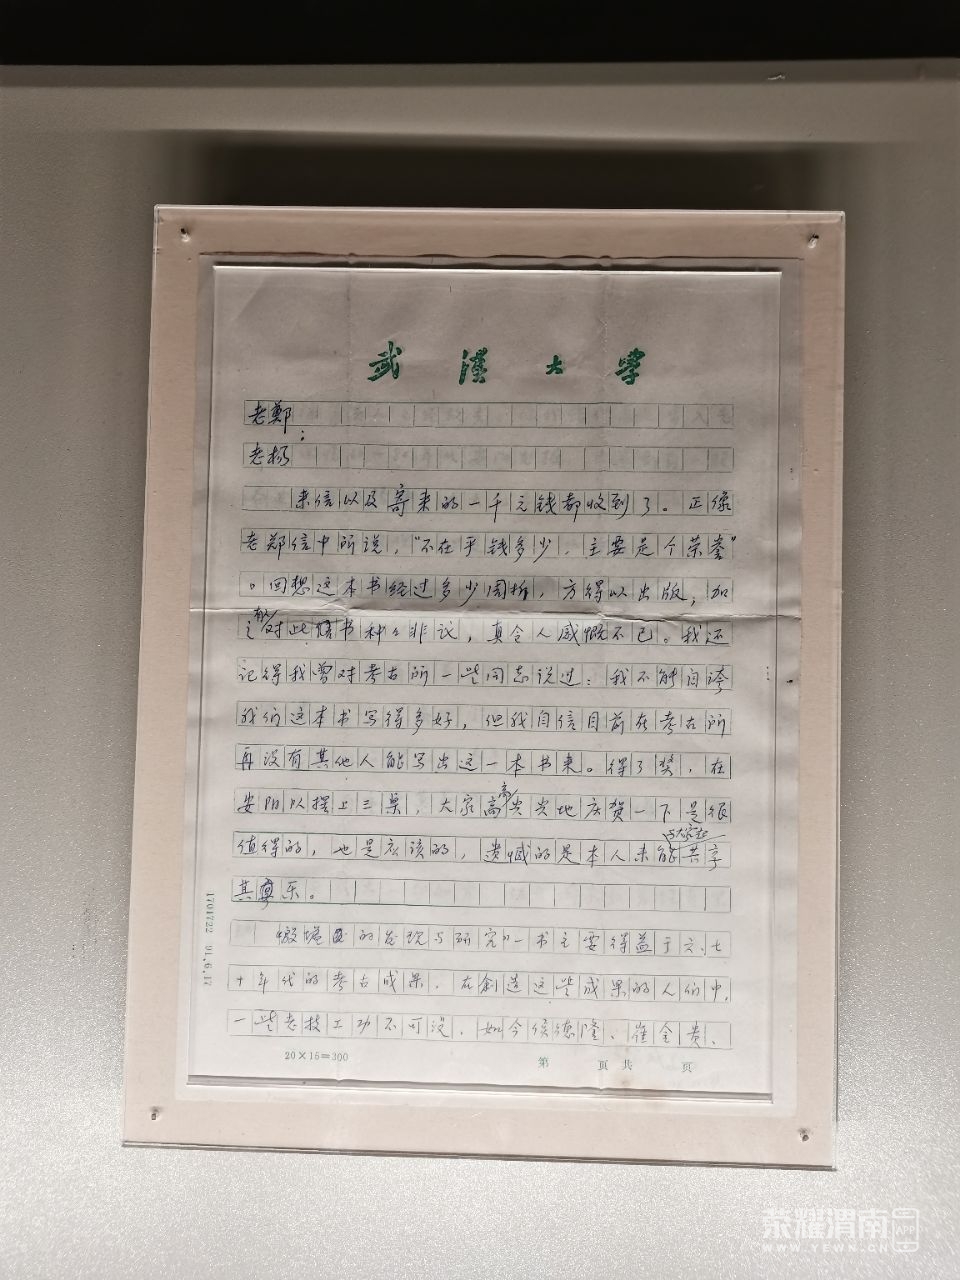 武漢大学
老鄭：
老杨
来信以及寄来的一千元钱都收到了。正像
老郑信中所说，“不在乎钱多少，主要是个荣誉”
。回想这本书经过多少周折，方得以出版，加
之有人对此书种种非议，真令人感慨不已。我还
记得我曾对考古所一些同志说过：我不能自誇
我们这本书写得多好，但我自信目前在考古所
再没有其他人能写出这一本书来。得了奖，在
安阳以摆上三桌，大家高高兴兴地庆贺一下是很
值得的，也是应该的，遗憾的是本人未能与大家共享
其乐。
“殷墟的发现与研究”一书主要得益于六、七
十年代的考古成果。在创造这些成果的人们中，
一些老技工功不可没，如今候德隆、崔金贵、
1701722 91.6.17
20×15=300
第 页共 页
荣耀渭南
APP
WWW.YEWN.CN